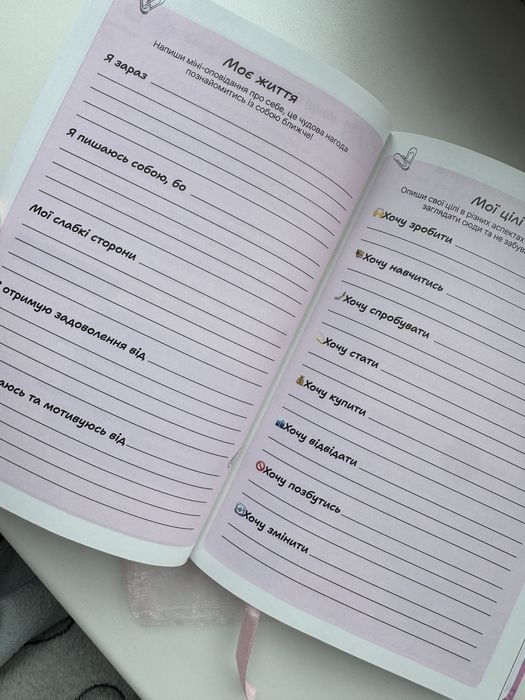 Моє життя
Напиши міні-оповідання про себе, це чудова нагода
познайомитись із собою ближче!
Я зараз
Я пишаюсь собою, бо
Мої слабкі сторони
отримую задоволення від
та мотивуюсь від
Мої цілі
Опиши свої цілі в різних аспектах
заглядати сюди та не
Хочу зробити
Хочу навчитись
Хочу спробувати
Хочу стати
Хочу купити
Хочу відвідати
Хочу позбутись
Хочу змінити